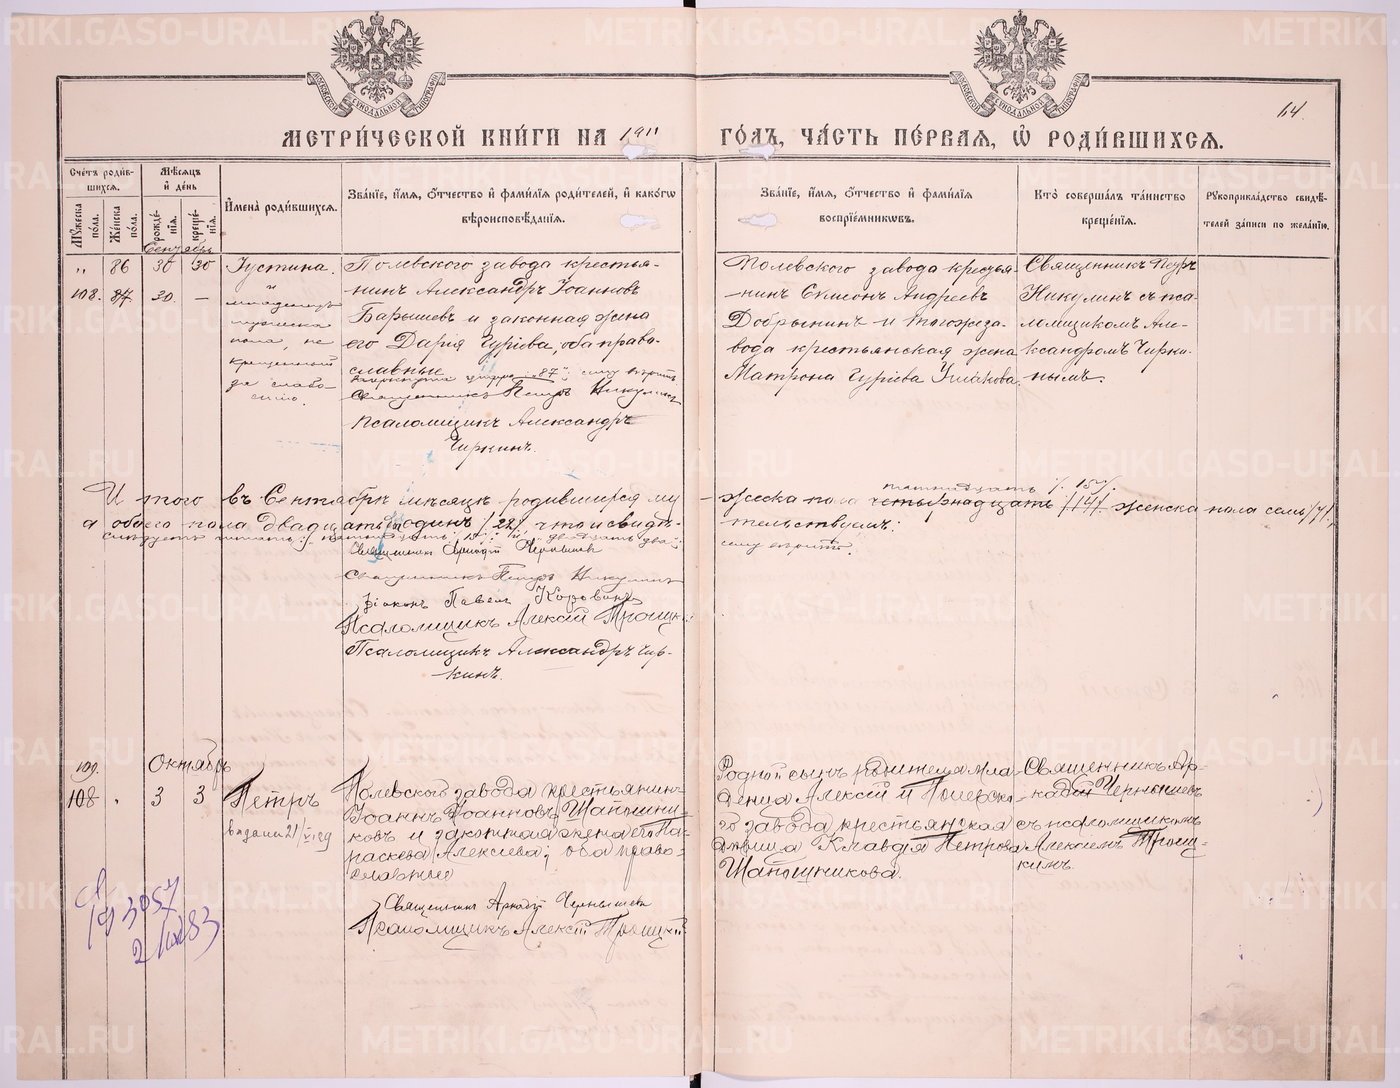 МЕТРИ́ЧЕСКОЙ КНИ́ГИ НА 1911 ГО́ДЪ, ЧА́СТЬ ПЕ́РВАЯ, Ѿ РОДИ́ВШИХСЯ.
64.
Сче́тъ роди́в-
шихся.
Му́жеска по́ла.
Же́нска по́ла.
Мѣ́сяцъ
и҆ де́нь
рожде́нїя.
креще́нїя.
И҆мена̀ роди́вшихся.
Зва́нїе, и҆́мя, ѻ҆́тчество и҆ фами́лїя роди́телей, и҆ како́гѡ
вѣроисповѣ́данїя.
Зва́нїе, и҆́мя, ѻ҆́тчество и҆ фами́лїя
воспрїе́мникѡвъ.
Кто̀ соверша́лъ та́инство
креще́нїя.
Рукоприкла́дство свидѣ́-
телей за́писи по жела́нїю.
Сентябрь
" 86 30 30 Іустина.
108. 87 30. —
младенецъ
мужеска
пола, не
крещенный
за слабо-
стію.
Полевского завода крестья-
нинъ Александръ Іоанновъ
Барышевъ и законная жена
его Дарія Гуріева, оба право-
славные
зачеркнута цифра „87“ сему вѣрить
Священникъ Петръ Никулинъ
Псаломщикъ Александръ
Чиркинъ.
Полевского завода крестья-
нинъ Симеонъ Андреевъ
Добрынинъ и тогоже за-
вода крестьянская жена
Матрона Гуріева Ушакова.
Священникъ Петръ
Никулинъ съ пса-
ломщикомъ Але-
ксандромъ Чирки-
нымъ.
пятнадцать /15/
И того въ Сентябрѣ мѣсяцѣ родившихся му-
жеска пола четырнадцать /14/ женска пола семь /7/,
а обоего пола двадцать одинъ /22/ что и свидѣ-
тельствуемъ:
сему вѣрить.
Священникъ Аркадій Чернышевъ
Священникъ Петръ Никулинъ
Діаконъ Павелъ Коровинъ
Псаломщикъ Алексій Троицкій
Псаломщикъ Александръ Чир-
кинъ.
Октябрь
109.
108 " 3 3 Петръ
Полевского завода крестьянинъ
Іоаннъ Іоанновъ Шапошни-
ковъ и законная жена его Па-
раскева Алексіева; оба право-
славные
Священникъ Аркадій Чернышевъ
Псаломщикъ Алексій Троицкій
Родной сынъ родителя мла-
денца Алексій и Полевско-
го завода крестьянская
дѣвица Клавдія Петрова
Шапошникова.
Священникъ Ар-
кадій Чернышевъ
съ псаломщикомъ
Алексіемъ Троиц-
кимъ.